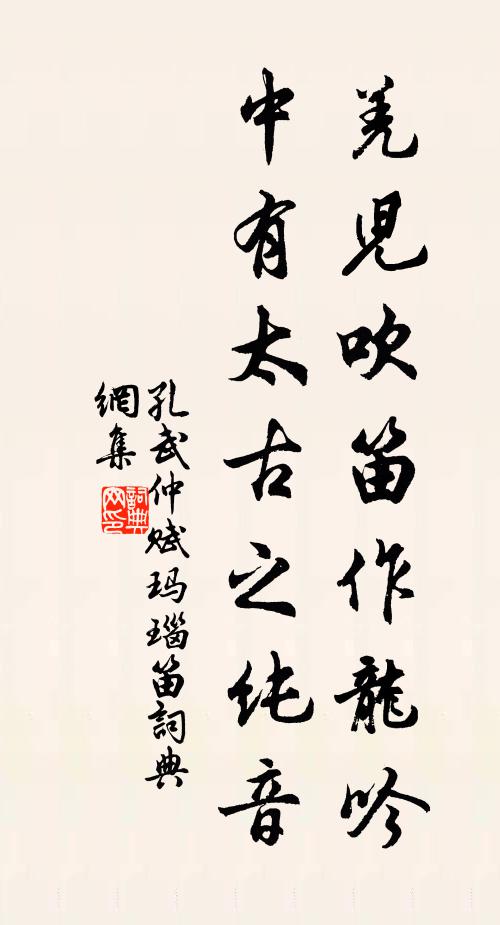 羌児吹笛作龍吟
中有太古之纯音
孔武仲赋玛瑙笛詞典
網集
詞典
网印